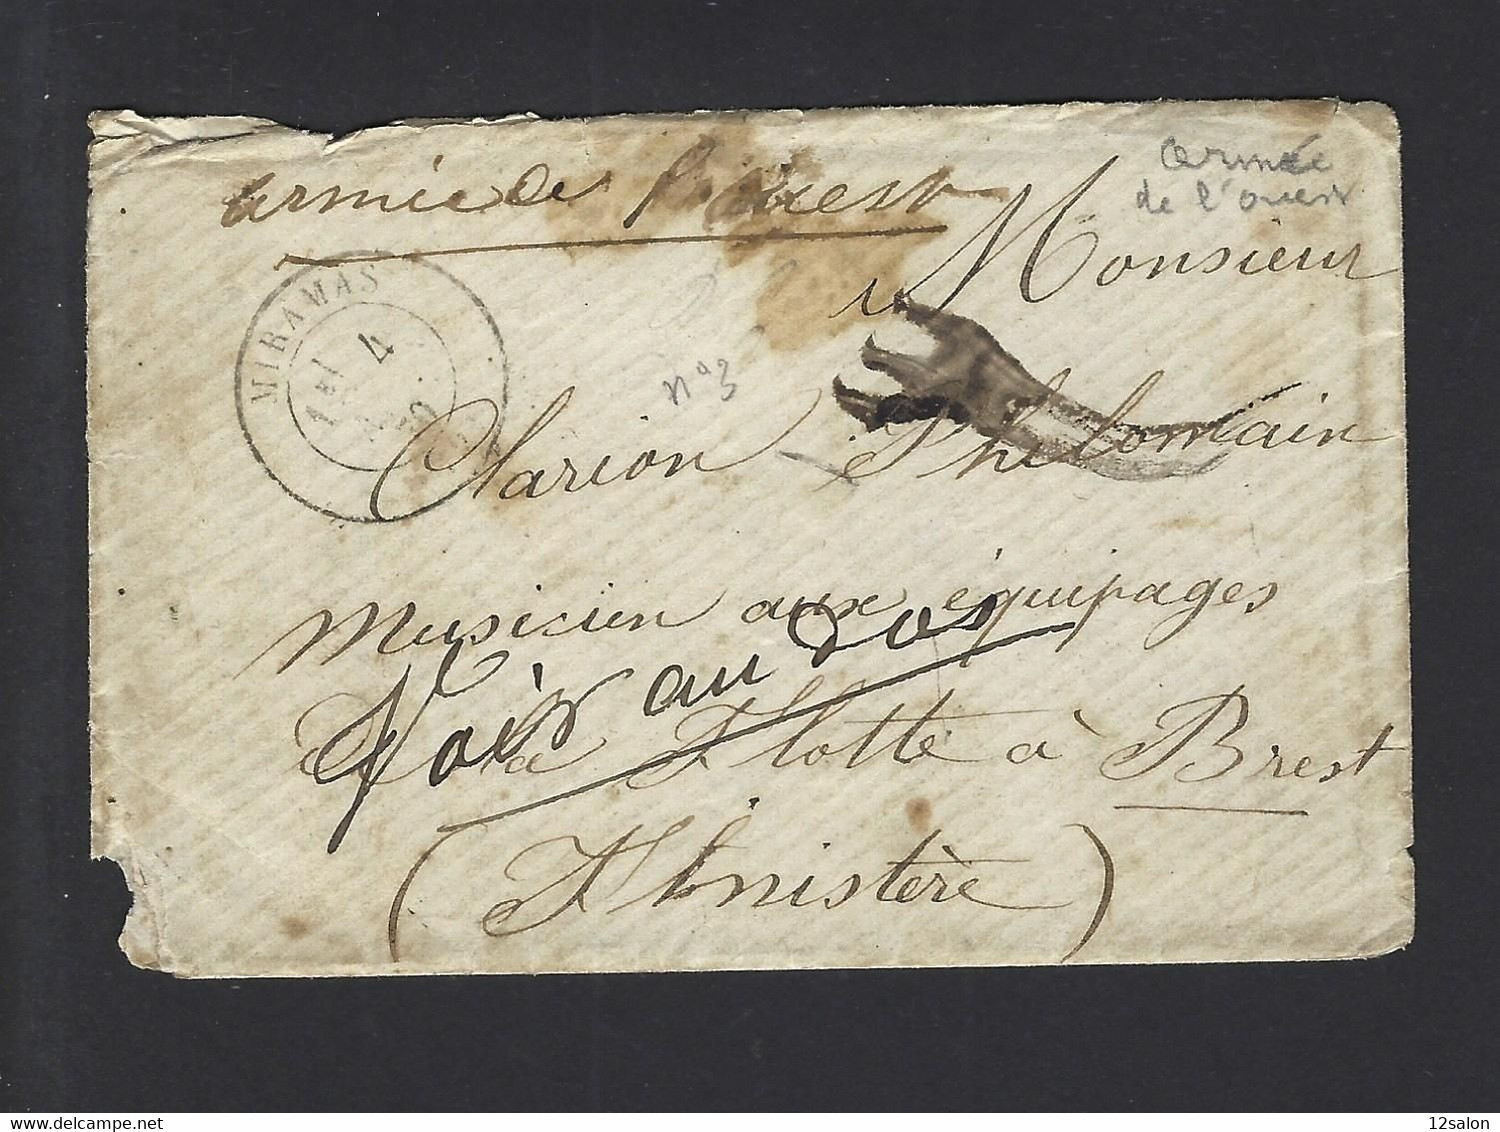 armée de l'ouest
armée
de l'ouest
Monsieur
MIRAMAS
4
n° 3
Clarion Philomain
Musicien aux équipages
Voir au dos
de la Flotte à Brest
(Finistère)
www.delcampe.net
12salon